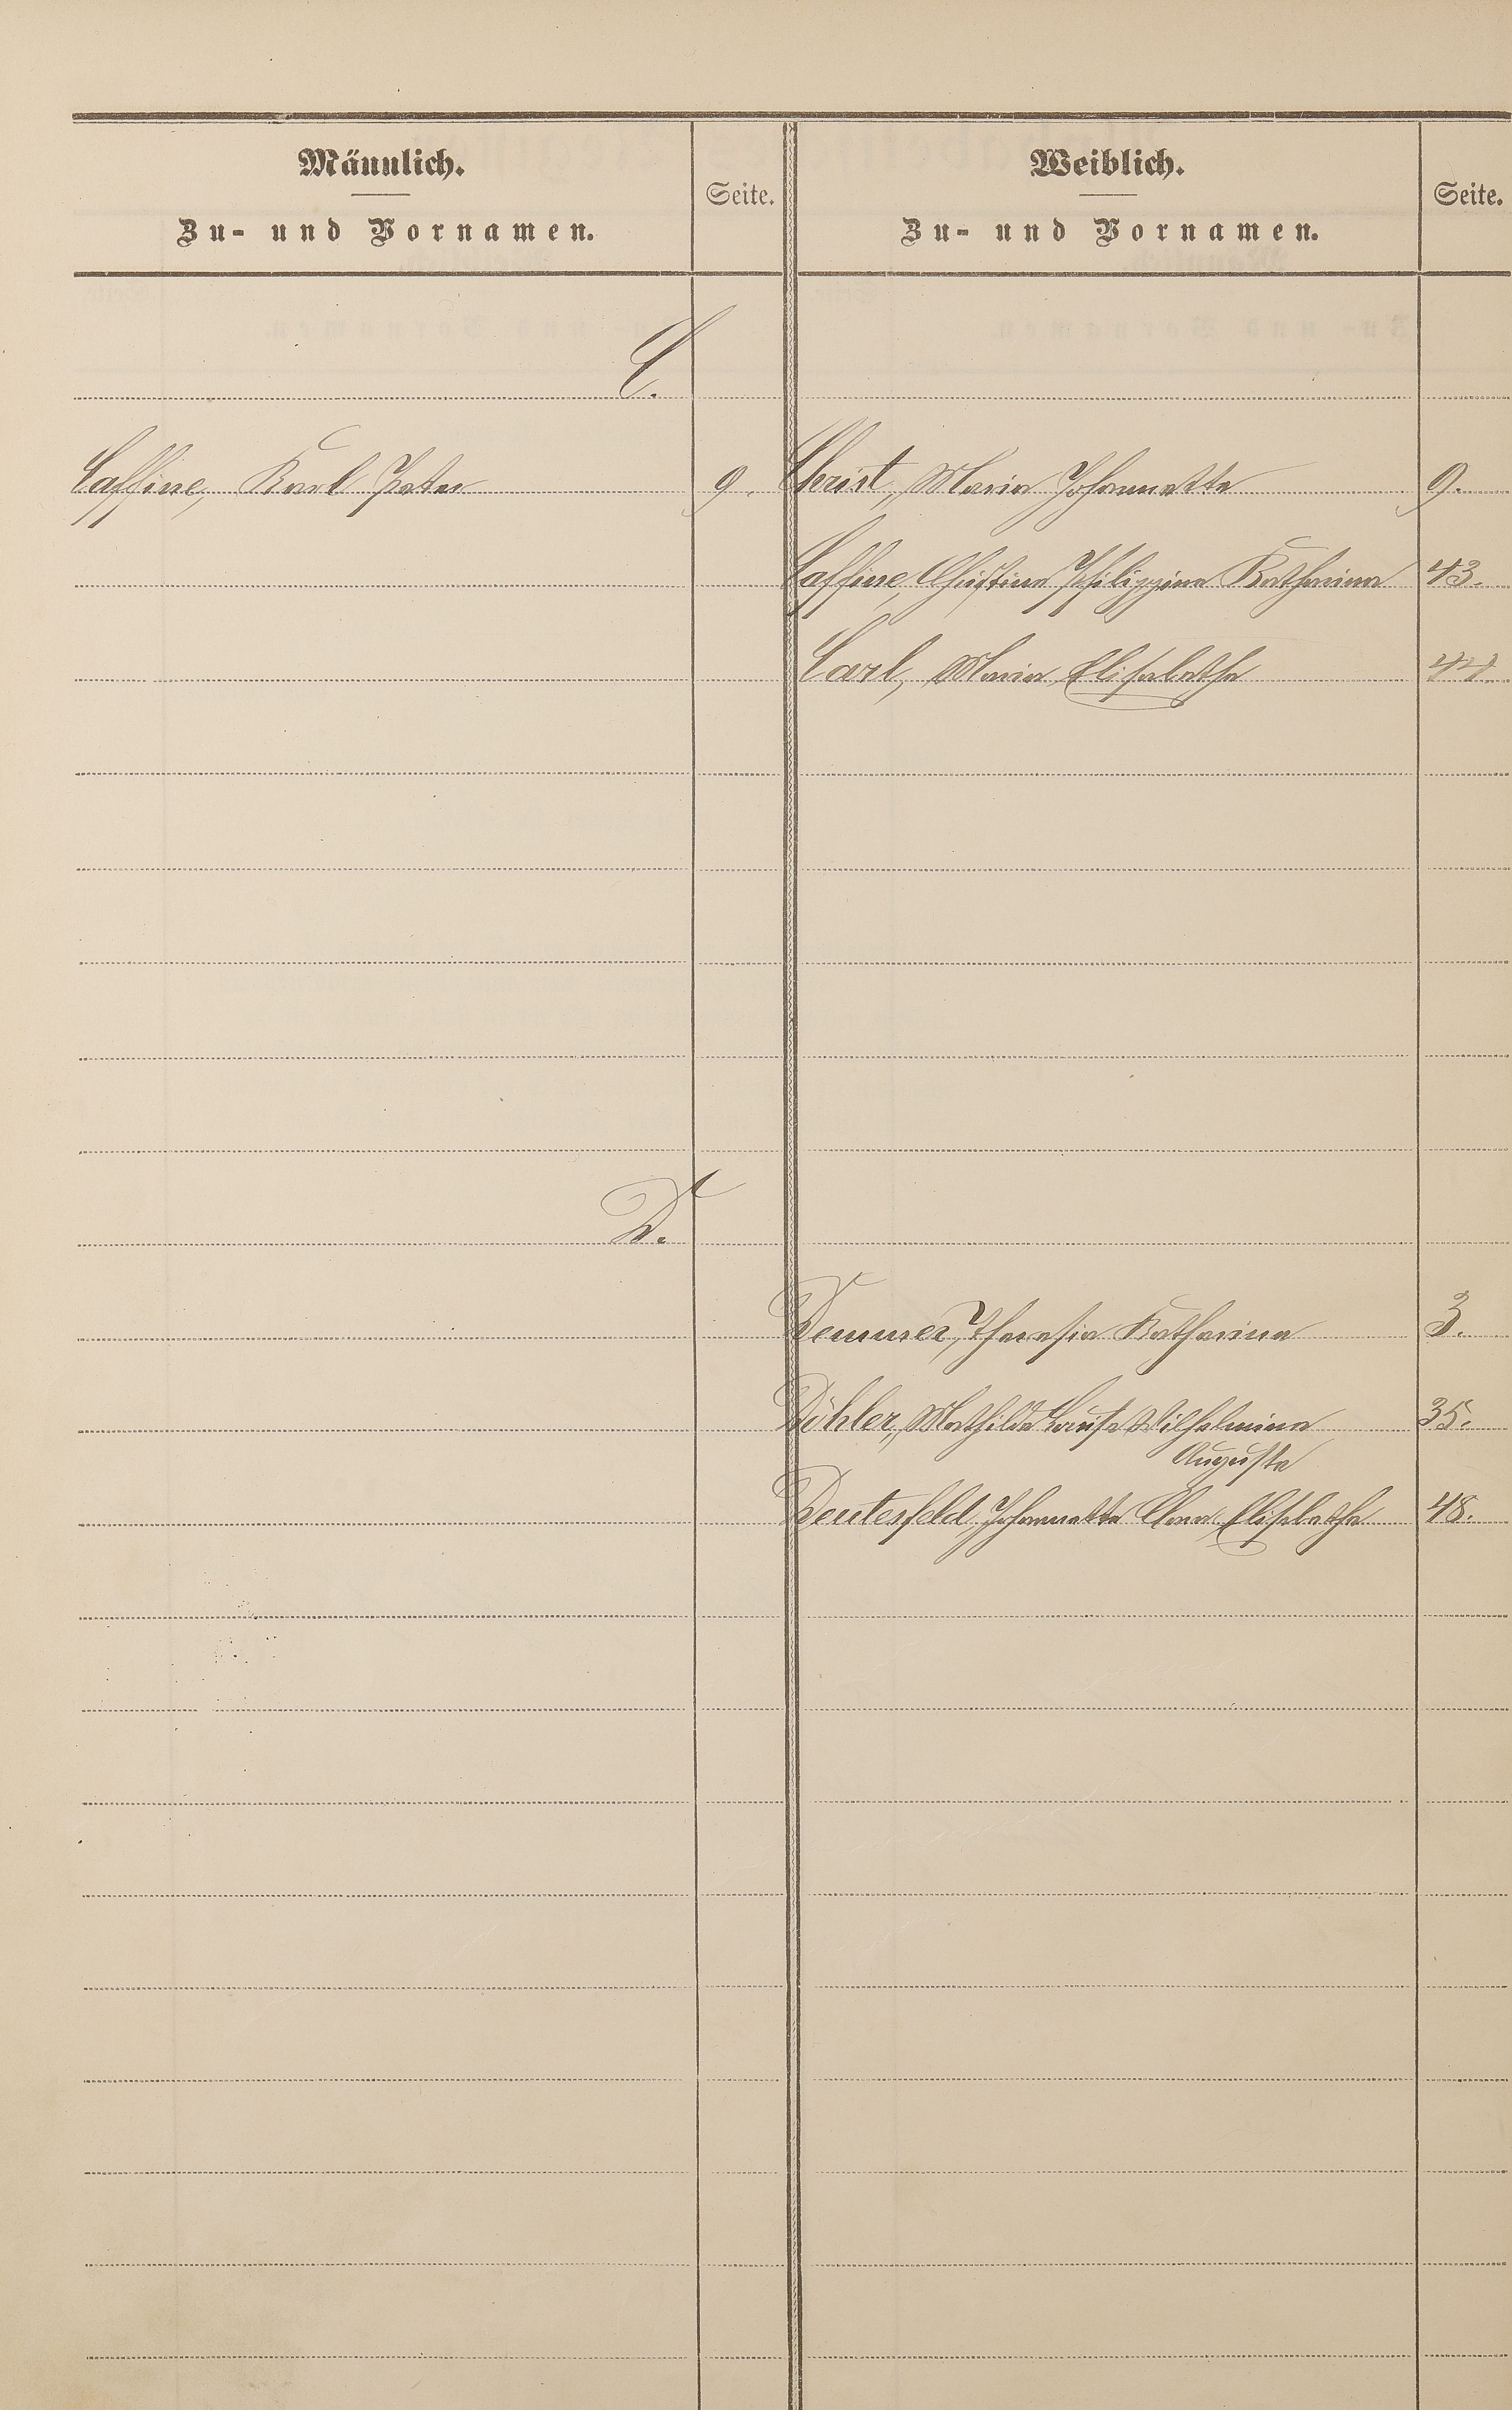 Männlich.
Zu- und Vornamen.
Seite.
Weiblich.
Zu- und Vornamen.
Seite.
C.
Caffine, Karl Peter 9. Christ, Maria Johannette 9.
Caffine, Christina Philippine Katharina 43.
Carl, Maria Elisabetha 44.
D.
Demmer, Theresia Katharina 3.
Döhler, Mathilde Louise Wilhelmine 35.
Auguste
Deutesfeld, Johannette Clara Elisabetha 48.